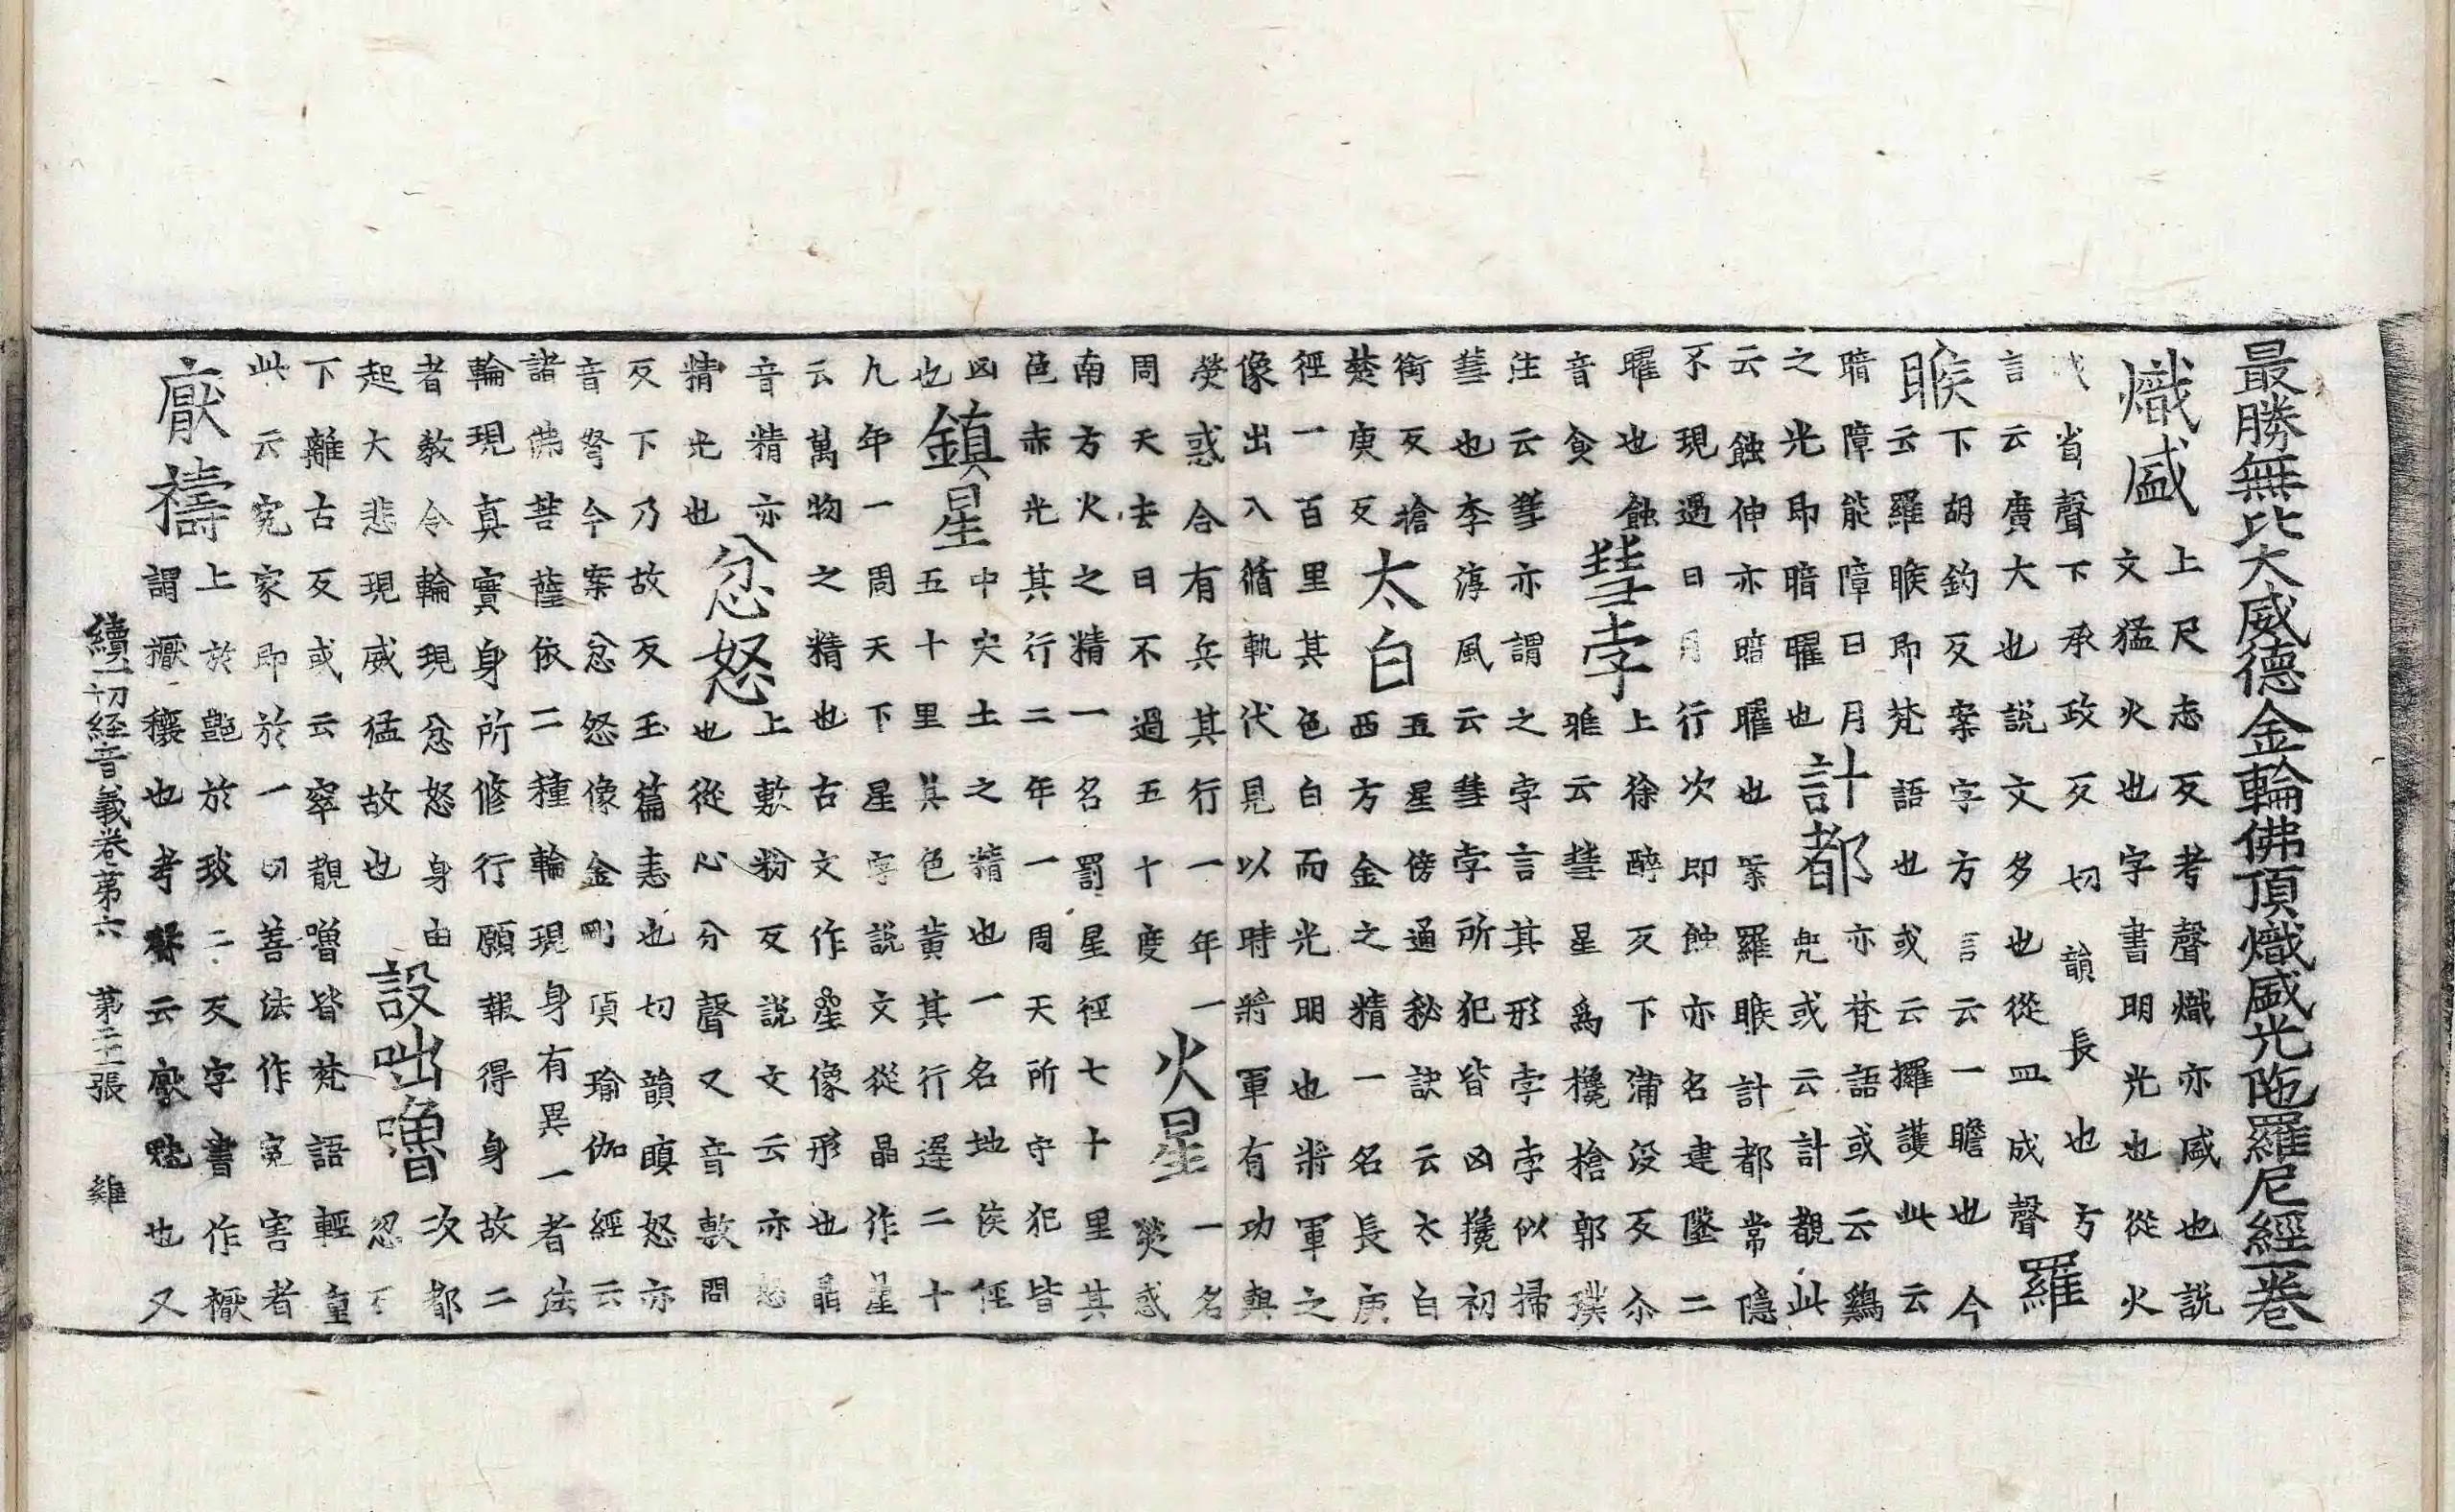 最勝無比大威德金輪佛頂熾盛光陁羅尼經一卷
熾盛
上尺志反考聲熾亦盛也說
文猛火也字書明光也從火
省聲下承政反切韻長也
言云廣大也說文多也從皿成聲羅
睺
下胡鈎反案字方言云一瞻也今
云羅睺即梵語也或云攞護此云
暗障能障日月
之光即暗曜也計都
亦梵語或云鷄
兜或云計都觀此
云蝕伸亦暗曜也案羅睺計都常隱
不現遇日月行次即蝕亦名建墜二
曜也蝕上徐醉反下蒲沒反尒
音食彗孛雅云彗星爲欃槍郭璞
注云彗亦謂之孛言其形孛孛似掃
彗也李淳風云彗孛所犯皆凶攙初
銜反槍
楚庚反太白
五星傍通秘訣云太白
西方金之精一名長庚
徑一百里其色白而光明也將軍之
像出入循軌伏見以時將軍有功與
熒惑合有兵其行一年一
周天去日不過五十度火星
一名
熒惑
南方火之精一名罰星徑七十里其
色赤光其行二年一周天所守犯皆
凶鎮星
中央土之精也一名地侯徑
也五十里其色黃其行遲二十
九年一周天下星字說文從晶作曐
云萬物之精也古文作曐像形也晶
音精亦
精光也忿怒
上敷粉反說文云亦怒
也從心分聲又音敷問
反下乃故反玉篇恚也切韻瞋怒亦
音弩今案忿怒像金剛頂瑜伽經云
諸佛菩薩依二種輪現身有異一者法
輪現真實身所修行願報得身故二
者教令輪現忿怒身由
起大悲現威猛故也設咄嚕
次都
忽
下離古反或云窣覩嚕皆梵語輕重
此云寃家即於一切善法作寃害者
厭禱
上於豔於琰二反字書作㦄
謂㦄穰也考聲云厭魅也又
續一切經音義卷第六　第二十二張　雞